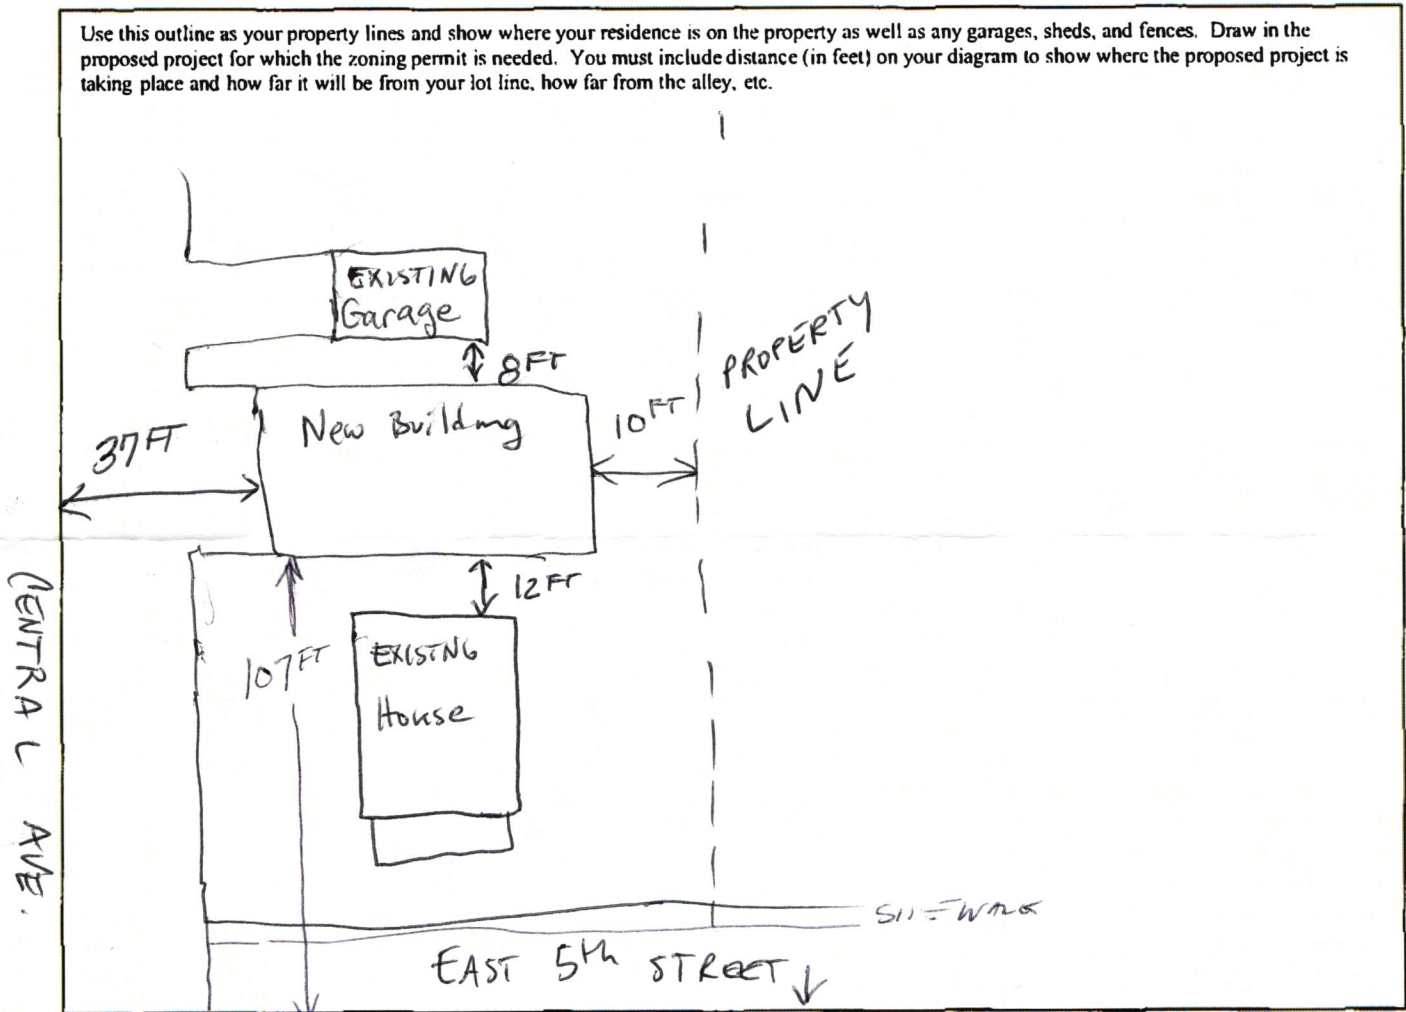 Use this outline as your property lines and show where your residence is on the property as well as any garages, sheds, and fences. Draw in the
proposed project for which the zoning permit is needed. You must include distance (in feet) on your diagram to show where the proposed project is
taking place and how far it will be from your lot line, how far from the alley, etc.
EXISTING
Garage
8FT
PROPERTY
LINE
New Building
10FT
37FT
12FT
107FT
EXISTNG
House
CENTRAL AVE.
SIDEWALK
EAST 5th STREET